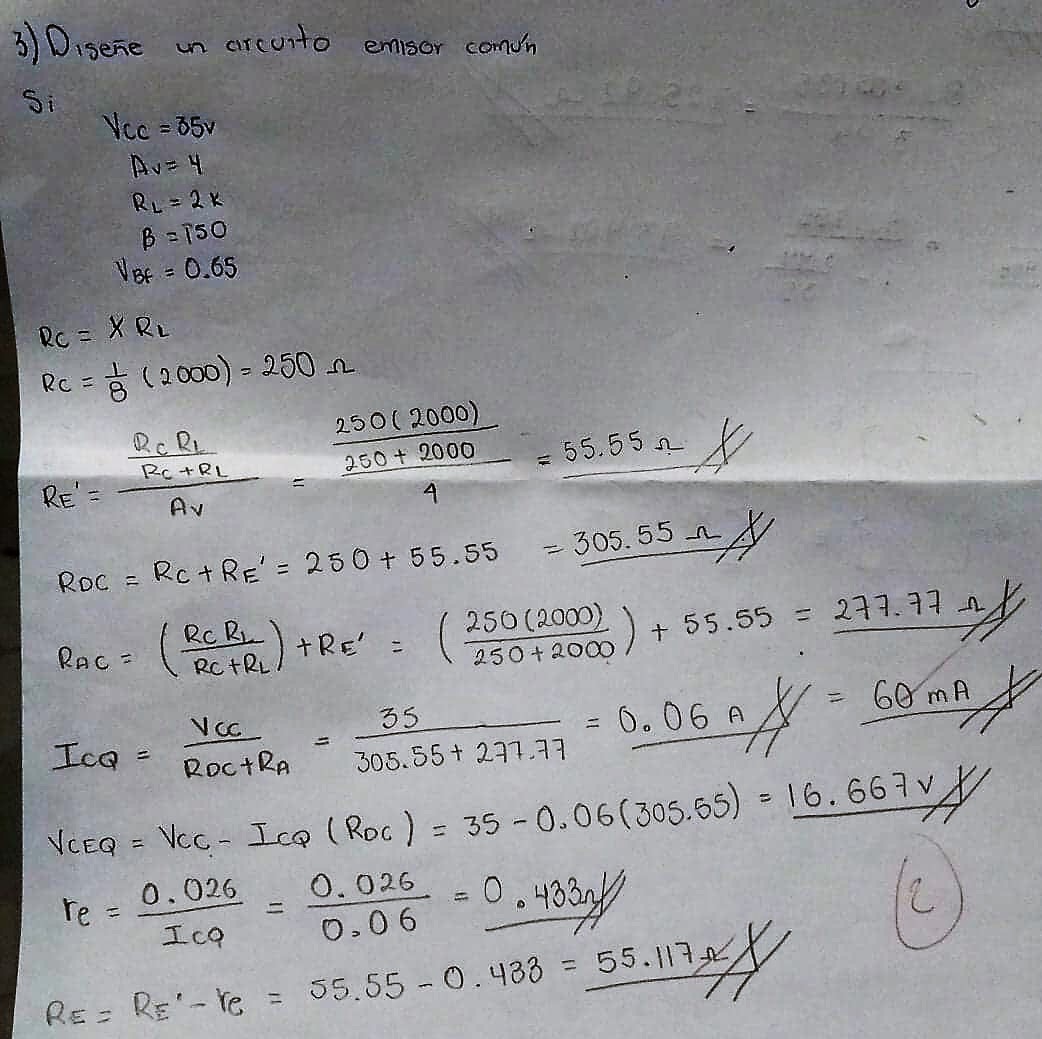 3) Diseñe un circuito emisor común
Si
Vcc = 35v
Av = 4
RL = 2K
B = 150
VBE = 0.65
Rc = X RL
Rc = 1/8 (2000) = 250 Ω
RE' = (Rc RL / Rc + RL) / Av = (250(2000) / 250 + 2000) / 4 = 55.55 Ω
RDC = Rc + RE' = 250 + 55.55 = 305.55 Ω
RAC = (Rc RL / Rc + RL) + RE' = (250(2000) / 250 + 2000) + 55.55 = 277.77 Ω
ICQ = Vcc / RDC + RA = 35 / 305.55 + 277.77 = 0.06 A = 60 mA
VCEQ = Vcc - ICQ (RDC) = 35 - 0.06(305.55) = 16.667 v
re = 0.026 / ICQ = 0.026 / 0.06 = 0.433 Ω
2
RE = RE' - re = 55.55 - 0.433 = 55.117 Ω